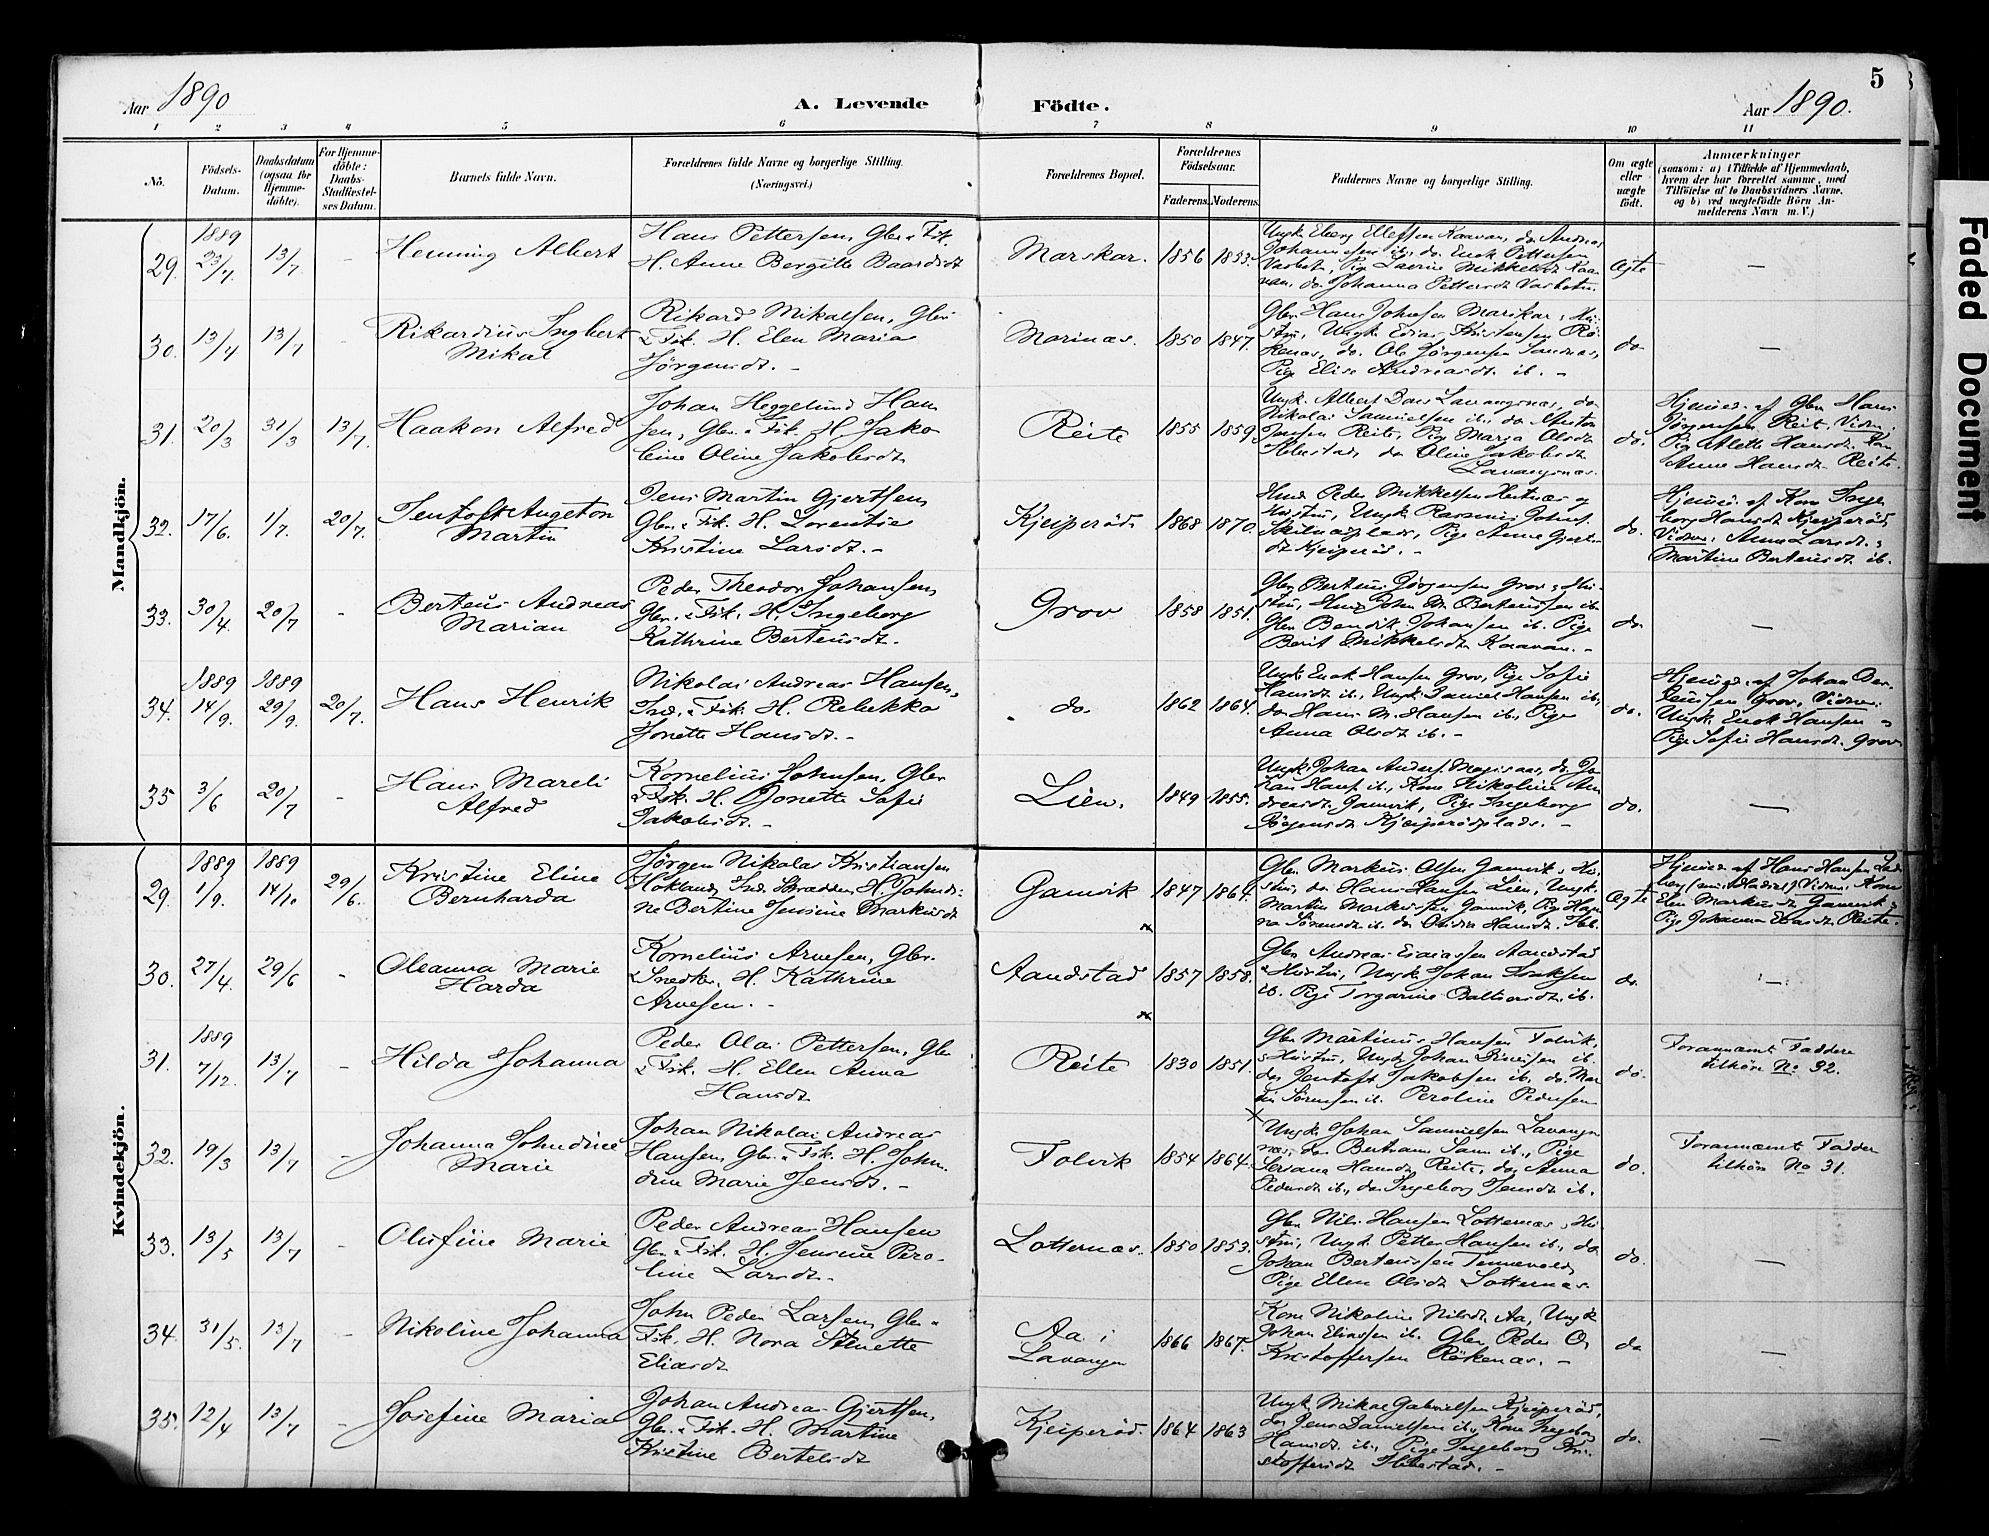 5
Aar 1890
A. Levende
Födte.
Aar 1890.
1 2 3 4 5 6 7 8 9 10 11
No.
Födsels-
Datum.
Daabsdatum
(ogsaa for
Hjemme-
döbte).
For Hjemme-
döbte:
Daabs-
Stadfæstel-
ses Datum.
Barnets fulde Navn.
Forældrenes fulde Navne og borgerlige Stilling.
(Næringsvei.)
Forældrenes Bopæl.
Forældrenes
Födselsaar.
Faderens. Moderens.
Faddernes Navne og borgerlige Stilling.
Om ægte
eller
uægte
födt.
Anmærkninger
(saasom: a) i Tilfælde af Hjemmedaab,
hvem der har forrettet samme, med
Tilföielse af to Daabsvidners Navne,
og b) ved uægtefödte Börn An-
melderens Navn m. V.)
Mandkjön.
29. 1889 23/7. 13/7 - Henning Albert
Hans Pettersen, Gbr. & Fisk.
H. Anne Bergitte Baardsdt
Marskar. 1856 1853.
Johannesen ib., do. Enok Pettersen
do. Johanna Pettersdt Varboten.
Ægte —
30. 13/4 13/7 Rikardius Ingbert
Mikal
Rikard Mikalsen, Gbr.
& Fisk. H. Elen Maria
Jörgensdt. -
Marinæs. 1850 1847.
Gbr. Hans Johnsen Marskar & Hu-
stru, Ungk. Edias Kristensen Rö-
kenæs, do. Ole Jörgensen Sandnæs,
Pige Elise Andreasdt. ib. -
do —
31. 20/3 31/3 13/7. Haakon Alfred
Johan Heggelund Han
sen, Gbr. & Fisk. H. Jako
bine Oline Jakobsdt
Reite 1855 1859
Nikolai Samuelsen ib., do Anton
Jensen Reite, Pige Maria Olsdt
Ibbestad, do Oline Jakobsdt
Lavangsnæs.
do.
Hjemmed. af Gbr. Hans
Jörgensen Reit. Vidn.:
Pige Alette Hansdt. Kone
Anne Hansdt. Reite.
32. 17/6. 1/7. 20/7. Jentoft Angeton
Martin
Jens Martin Gjertsen,
Gbr. & Fisk. H. Lorentse
Kristine Larsdt. -
Kjeiperöd. 1868 1870.
Peder Mikkelsen
Hustru, Ungk. Rasmus Johns.
Pige Anne Gjert-
dt Kjeiperöd. -
do.
Hjemmed. af Kone Inge
borg Hansdt Kjeiperöd,
Vidne: Anne Larsdt. &
Martine Bertensdt ib.
33. 30/4. 20/7 - Berteus Andreas
Marian
Peder Theodor Johansen,
Gbr. & Fisk. H. Ingeborg
Kathrine Berteusdt. -
Grov 1858 1851.
Gbr. Berteus Jörgensen Grov & Hu-
stru, John M. Berteussen ib
Gbr. Bendik Johansen ib. Pige
Berit Mikkelsdt Kaavan. -
do. —
34. 1889 14/9. 1889 29/9. 20/7. Hans Henrik
Nikolai Andreas Hansen,
Ind. & Fisk. H. Rebekka
Jonette Hansdt. -
do. 1862 1864.
Ungk. Enok Hansen Grov, Pige Sofie
Hansdt ib., Ungk. Daniel Hansen ib.,
do Hans M. Hansen ib., Pige
Anna Olsdt ib. -
do.
Hjemmed. af Johan Ber-
teussen Grov, Vidne:
Ungk. Enok Hansen &
Pige Sofie Hansdt. Grov
35 3/6 20/7 - Hans Mareli
Alfred
Kornelius Johnsen, Gbr
& Fisk. H. Jonette Sofie
Jakobsdt. -
Lien. 1849 1855.
Kone Nikoline An
dreasdt. Gamvik, Pige Ingeborg
Jörgensdt Kjeiperödplads. -
do. —
Kvindekjön.
29. 1889 1/9. 1889 14/10 29/6. Kristine Eline
Bernharda
Jörgen Nikolai Kristiansen
Hökland, Ind. Skrædder, H. Johan-
ne Bertine Jensine Markusdt
Gamvik 1847 1864.
Gbr. Markus Olsen Gamvik & Hu-
stru, do Hans Hansen Lien, Ungk.
Martin Markussen Gamvik, Pige Han
na Sörensdt ib.
Ægte
Hjemmed. af Hans Hansen
Vidne: Kone
Elen Markusdt Gamvik &
Pige Johanna Reite.
30. 27/4. 29/6 - Oleanna Marie
Harda
Kornelius Arnesen, Gbr.
& Snedker. H. Kathrine
Arnesen. -
Aandstad 1857 1858.
Gbr. Andreas Esaiassen Aandstad
& Hustru, Ungk. Johan
ib. Pige Torgarine Baltsersdt. ib.
do. —
31. 1889 7/12. 13/7 - Hilda Johanna
Peder Olai Pettersen, Gbr
& Fisk. H. Ellen Anna
Hansdt
Reite 1830 1851.
Gbr Martinus Hansen Folvik,
& Hustru, Ungk. Johan ib.
do Jentoft Jakobsen ib. do. Mar
tin Sörensen ib. Peroline Pedersen
do.
Forannævnt Faddere
tilhöre No 32.
32. 19/3 13/7 - Johanna Johndine
Marie
Johan Nikolai Andreas
Hansen, Gbr. & Fisk. H. John-
dine Marie Jensdt. -
Folvik 1854 1864.
Ungk. Johan Samuelsen Lavangs
næs, do Bertram Sam. ib., Pige
Hansdt, Reite, do Anna
Pedersdt ib., do Ingeborg Jensdt ib.
do.
Forannævnt Fadder
tilhöre No 31.
33. 13/5 13/7 - Olufine Marie
Peder Andreas Hansen
Gbr. & Fisk. H. Jensine Pero-
line Larsdt. -
Lotternæs. 1850 1853.
Gbr. Nils Hansen Lotternæs & Hu-
stru, Ungk. Petter Hansen ib., do
Johan Berteussen Tennevold,
Pige Ellen Olsdt Lotternæs.
do. —
34. 31/5. 13/7 - Nikoline Johanna
John Peder Larsen, Gbr &
Fisk. H. Nora Stenette
Eliasdt
Aa i
Lavangen 1866 1867.
Kone Nikoline Nilsdt. Aa, Ungk
Johan Eliassen ib. Gbr. Peder O.
Kristoffersen Rökenæs. -
do —
35. 12/4 13/7 - Josefine Maria
Johan Andreas Gjertsen,
Gbr. & Fisk. H. Martine
Kristine Bertelsdt
Kjeiperöd. 1864 1863
Ungk. Mikal Gabrielsen Kjeiperöd,
do Jens Danielsen ib., Kone Ingeborg
Hansdt ib., Pige Ingeborg Kri-
stoffersdt Ibbestad. -
do. —
Faded Document